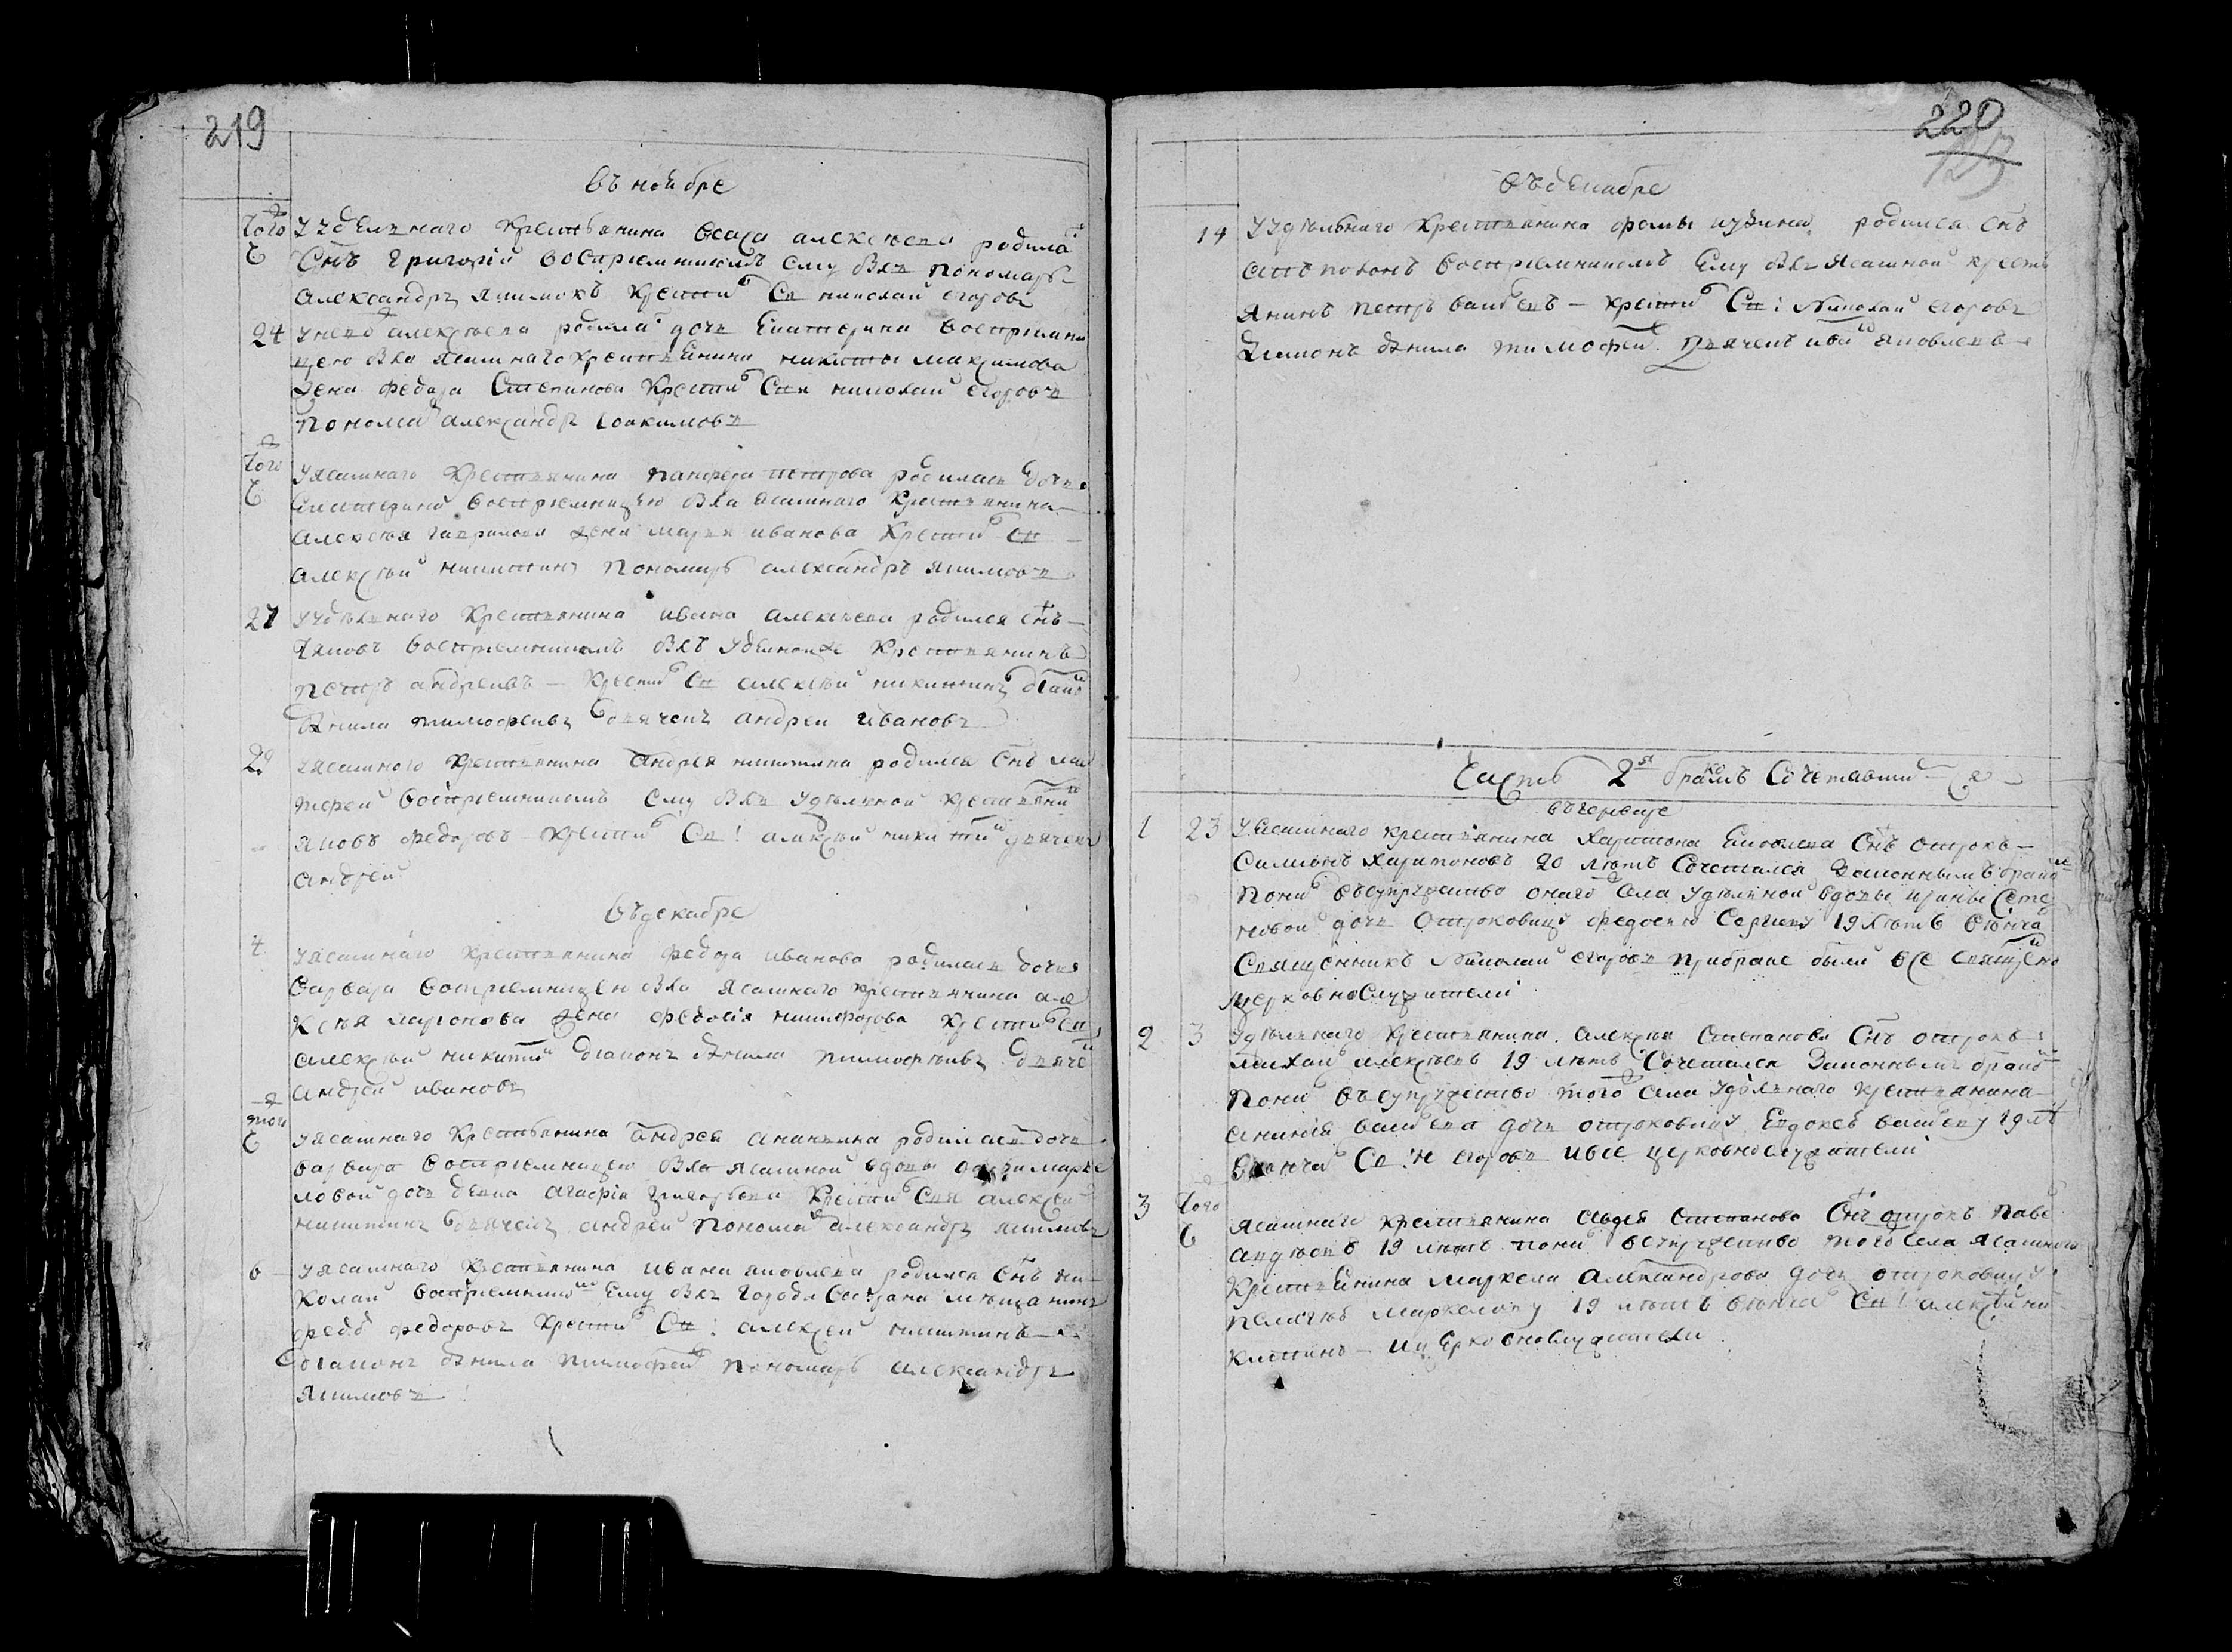 219
въ ноябре
тогож удельнаго крестьянина Исая алексеева родилс
снъ григорій восприемникомъ ему былъ пономарь
александръ якимовъ крестил св николаи егоровъ
24 алексеева родилас дочь екатерина восприемни
цею была ясашнаго крестьянина никиты максимова
жена федора степанова крестил свя николаи егоровъ
пономар александръ іоакимовъ
тогож у ясашнаго крестьянина панфера петрова родилась дочь
екатерина восприемницею была ясашнаго крестьянина
алексея гаврилова жена марья иванова крестил св
алексеи никитинъ пономарь александръ якимовъ
27 у удельнаго крестьянина ивана алексеева родился снъ
яковъ восприемникомъ былъ удельнои крестьянинъ
петръ андреивъ крестил св алексеи никитинъ диакон
данила тимофеивъ дьячекъ андреи ивановъ
29 у ясашного крестьянина андрея никитина родился снъ ма
тфеи восприемникомъ ему былъ удельной крестьянин
яковъ федоровъ крестил св: алексеи никитин дьячекъ
андреи
въ декабре
4 у ясашнаго крестьянина федора иванова родилась дочь
варвара восприемницею была ясашнаго крестьянина але
ксея ларионова жена федосія никифорова крестил св
алексеи никитин диаконъ данила тимофеивъ дьяче
андреи ивановъ
тогож у ясашнаго крестьянина андрея ананьина родилась дочь
варвара восприемницею была ясашной вдовы
ловой дочь девка агафія крестил свя алексеи
никитинъ дьячекъ андреи пономар александръ якимовъ
6 у ясашнаго крестьянина ивана яковлева родился снъ ни
колаи восприемником ему былъ города сызрана мещанинъ
федоръ федоровъ крестил св: алексеи никитинъ
диаконъ данила тимофеив пономарь александръ
якимовъ
220
въ декабре
14 у удельнаго крестьянина фомы кузмина родился снъ
восприемникомъ ему былъ ясашной кресть
янинъ петръ васильевъ крестил св: николаи егоровъ
диаконъ данила тимофеи дьячекъ иван яковлевъ
часть 2я о бракомъ сочетавшихся
въ генваре
1 23 у ясашнаго крестьянина харитона снъ отрокъ
симионъ харитоновъ 20 летъ сочетался законнымъ бракомъ
понял въ супружество онаго села удельной вдовы ирины семе
новой дочь отроковицу федосью сергиеву 19 летъ венчал
священникъ николаи егоровъ при браке были все священо
церковнослужители
2 3 удельнаго крестьянина алексея степанова снъ отрокъ
михаил алексеевъ 19 летъ сочетался законнымъ браком
понял въ супружество того села удельнаго крестьянина
ананія васильева дочь отроковицу васильеву 19 лет
венчал св: н егоровъ и все церковнослужители
3 тогож ясашнаго крестьянина авдея степанова снъ отрокъ паве
авдеевъ 19 летъ понял в супружество того села ясашнаго
крестьянина маркела александрова дочь отроковицу
пелагею маркелову 19 летъ венчал св: алексеи ни
китинъ и церковнослужители